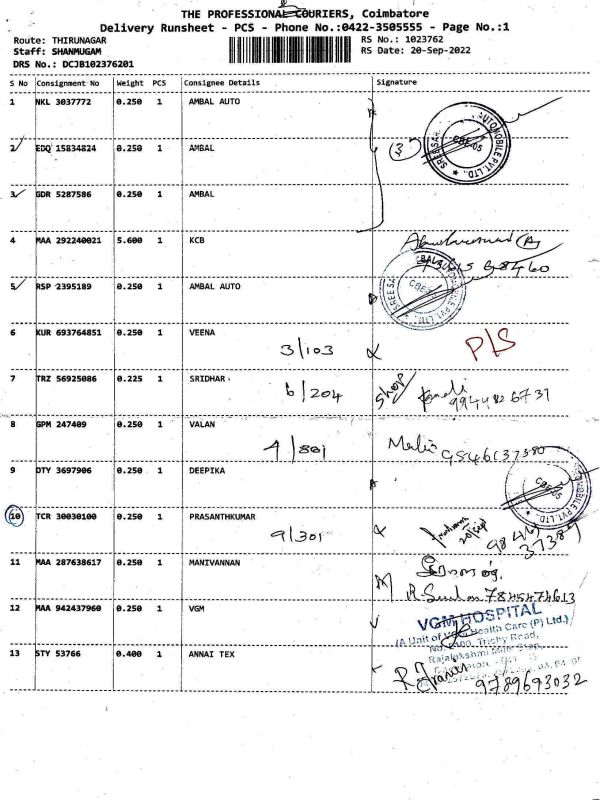 THE PROFESSIONAL COURIERS, Coimbatore
Delivery Runsheet - PCS - Phone No.:0422-3505555 - Page No.:1
Route: THIRUNAGAR
RS No.: 1023762
Staff: SHANMUGAM
RS Date: 20-Sep-2022
DRS No.: DCJB102376201
S No Consignment No Weight PCS Consignee Details Signature
1 NKL 3037772 0.250 1 AMBAL AUTO
2 EDQ 15834824 0.250 1 AMBAL
3
CBE-05
AUTOMOBILE PVT.LTD.
3 GDR 5287586 0.250 1 AMBAL
4 MAA 292240021 5.600 1 KCB
5 RSP 2395189 0.250 1 AMBAL AUTO
6 KUR 693764851 0.250 1 VEENA
3/103 P/S
7 TRZ 56925086 0.225 1 SRIDHAR
6/204 Shop
8 GPM 247409 0.250 1 VALAN
4/801
9 DTY 3697906 0.250 1 DEEPIKA
CBE-05
10 TCR 30030100 0.250 1 PRASANTHKUMAR
9/301
11 MAA 287638617 0.250 1 MANIVANNAN
7845474613
12 MAA 942437960 0.250 1 VGM
VGM HOSPITAL
(A Unit of VGM Health Care (P) Ltd.)
Trichy Road,
13 STY 53766 0.400 1 ANNAI TEX
9789693032